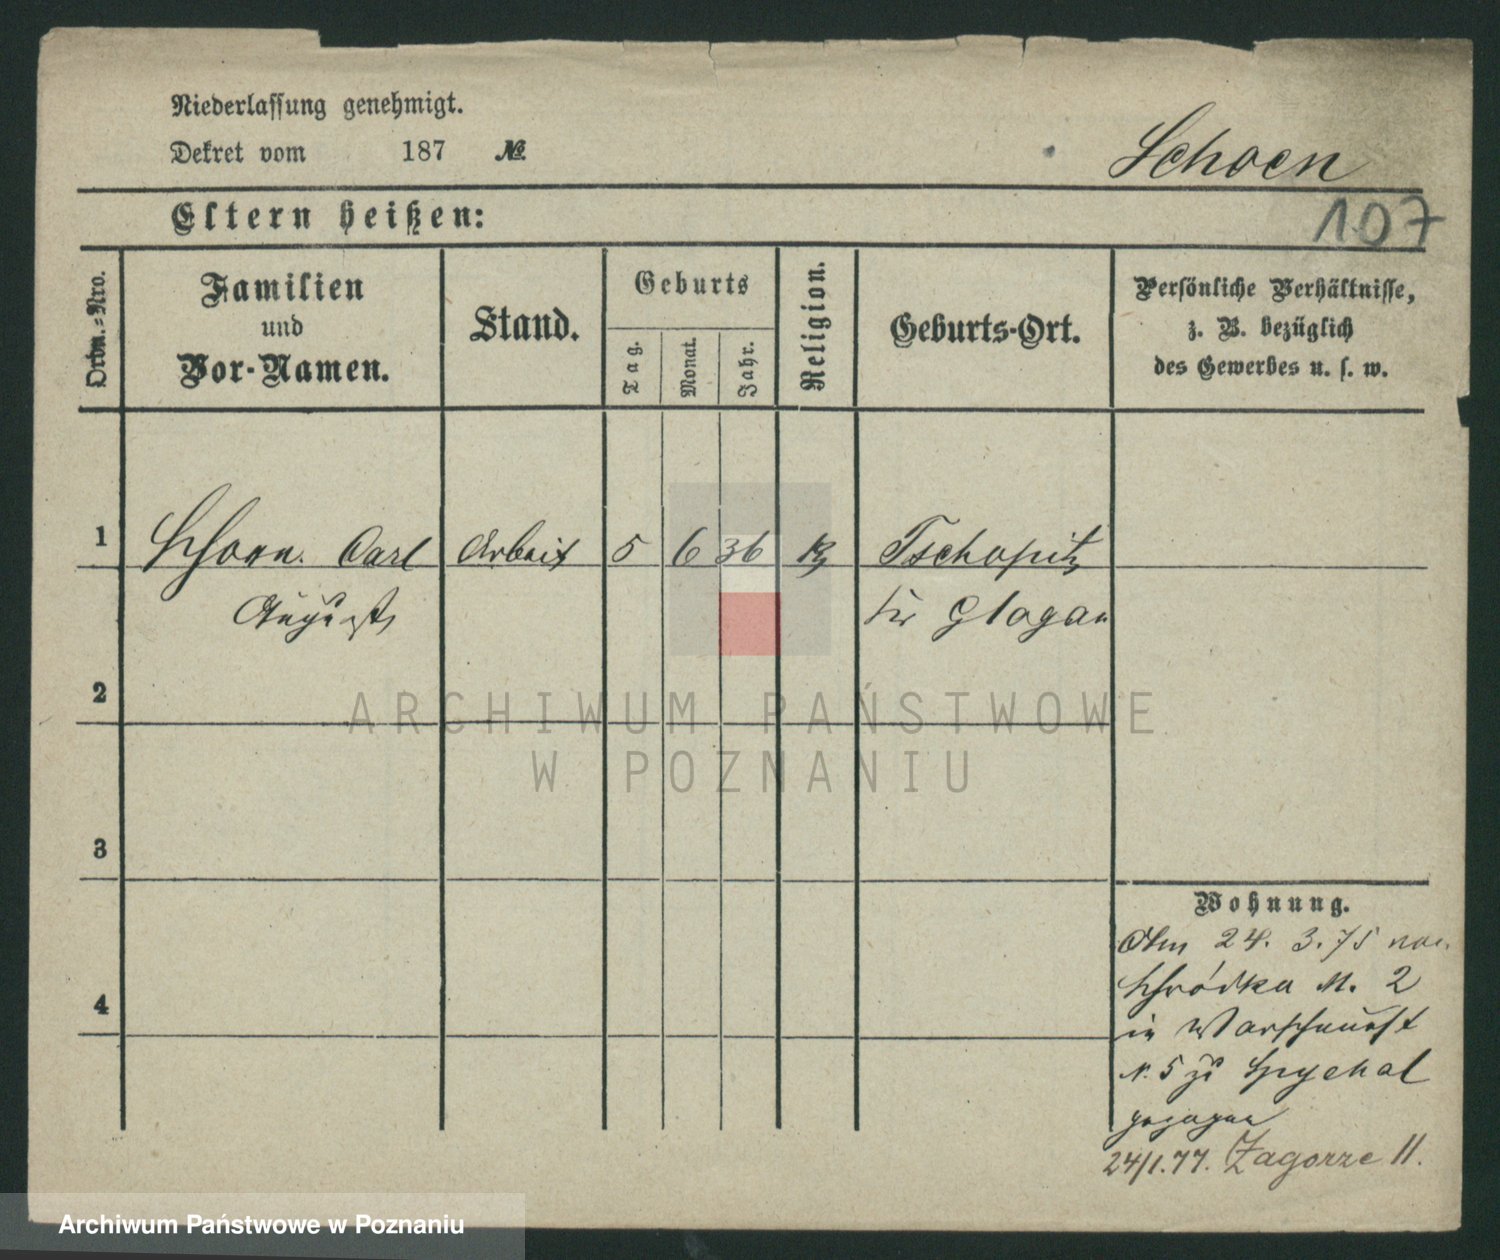 Niederlassung genehmigt.
Dekret vom 187 №
Schoen
Eltern heißen:
107
Ordn.-Nro.
Familien
und
Vor-Namen.
Stand.
Geburts
Tag.
Monat.
Jahr.
Religion.
Geburts-Ort.
Persönliche Verhältnisse,
z. B. bezüglich
des Gewerbes u. s. w.
1 Schoen. Carl Arbeit 5 6 36 Tschopitz
August Glogau
2
ARCHIWUM PAŃSTWOWE
W POZNANIU
3
Wohnung.
Am 24. 3. 75 von
Schrodka N. 2
in Warschauerst
4
N. 5 zu Spychal
gezogen
24/1.77. Zagorze 11.
Archiwum Państwowe w Poznaniu